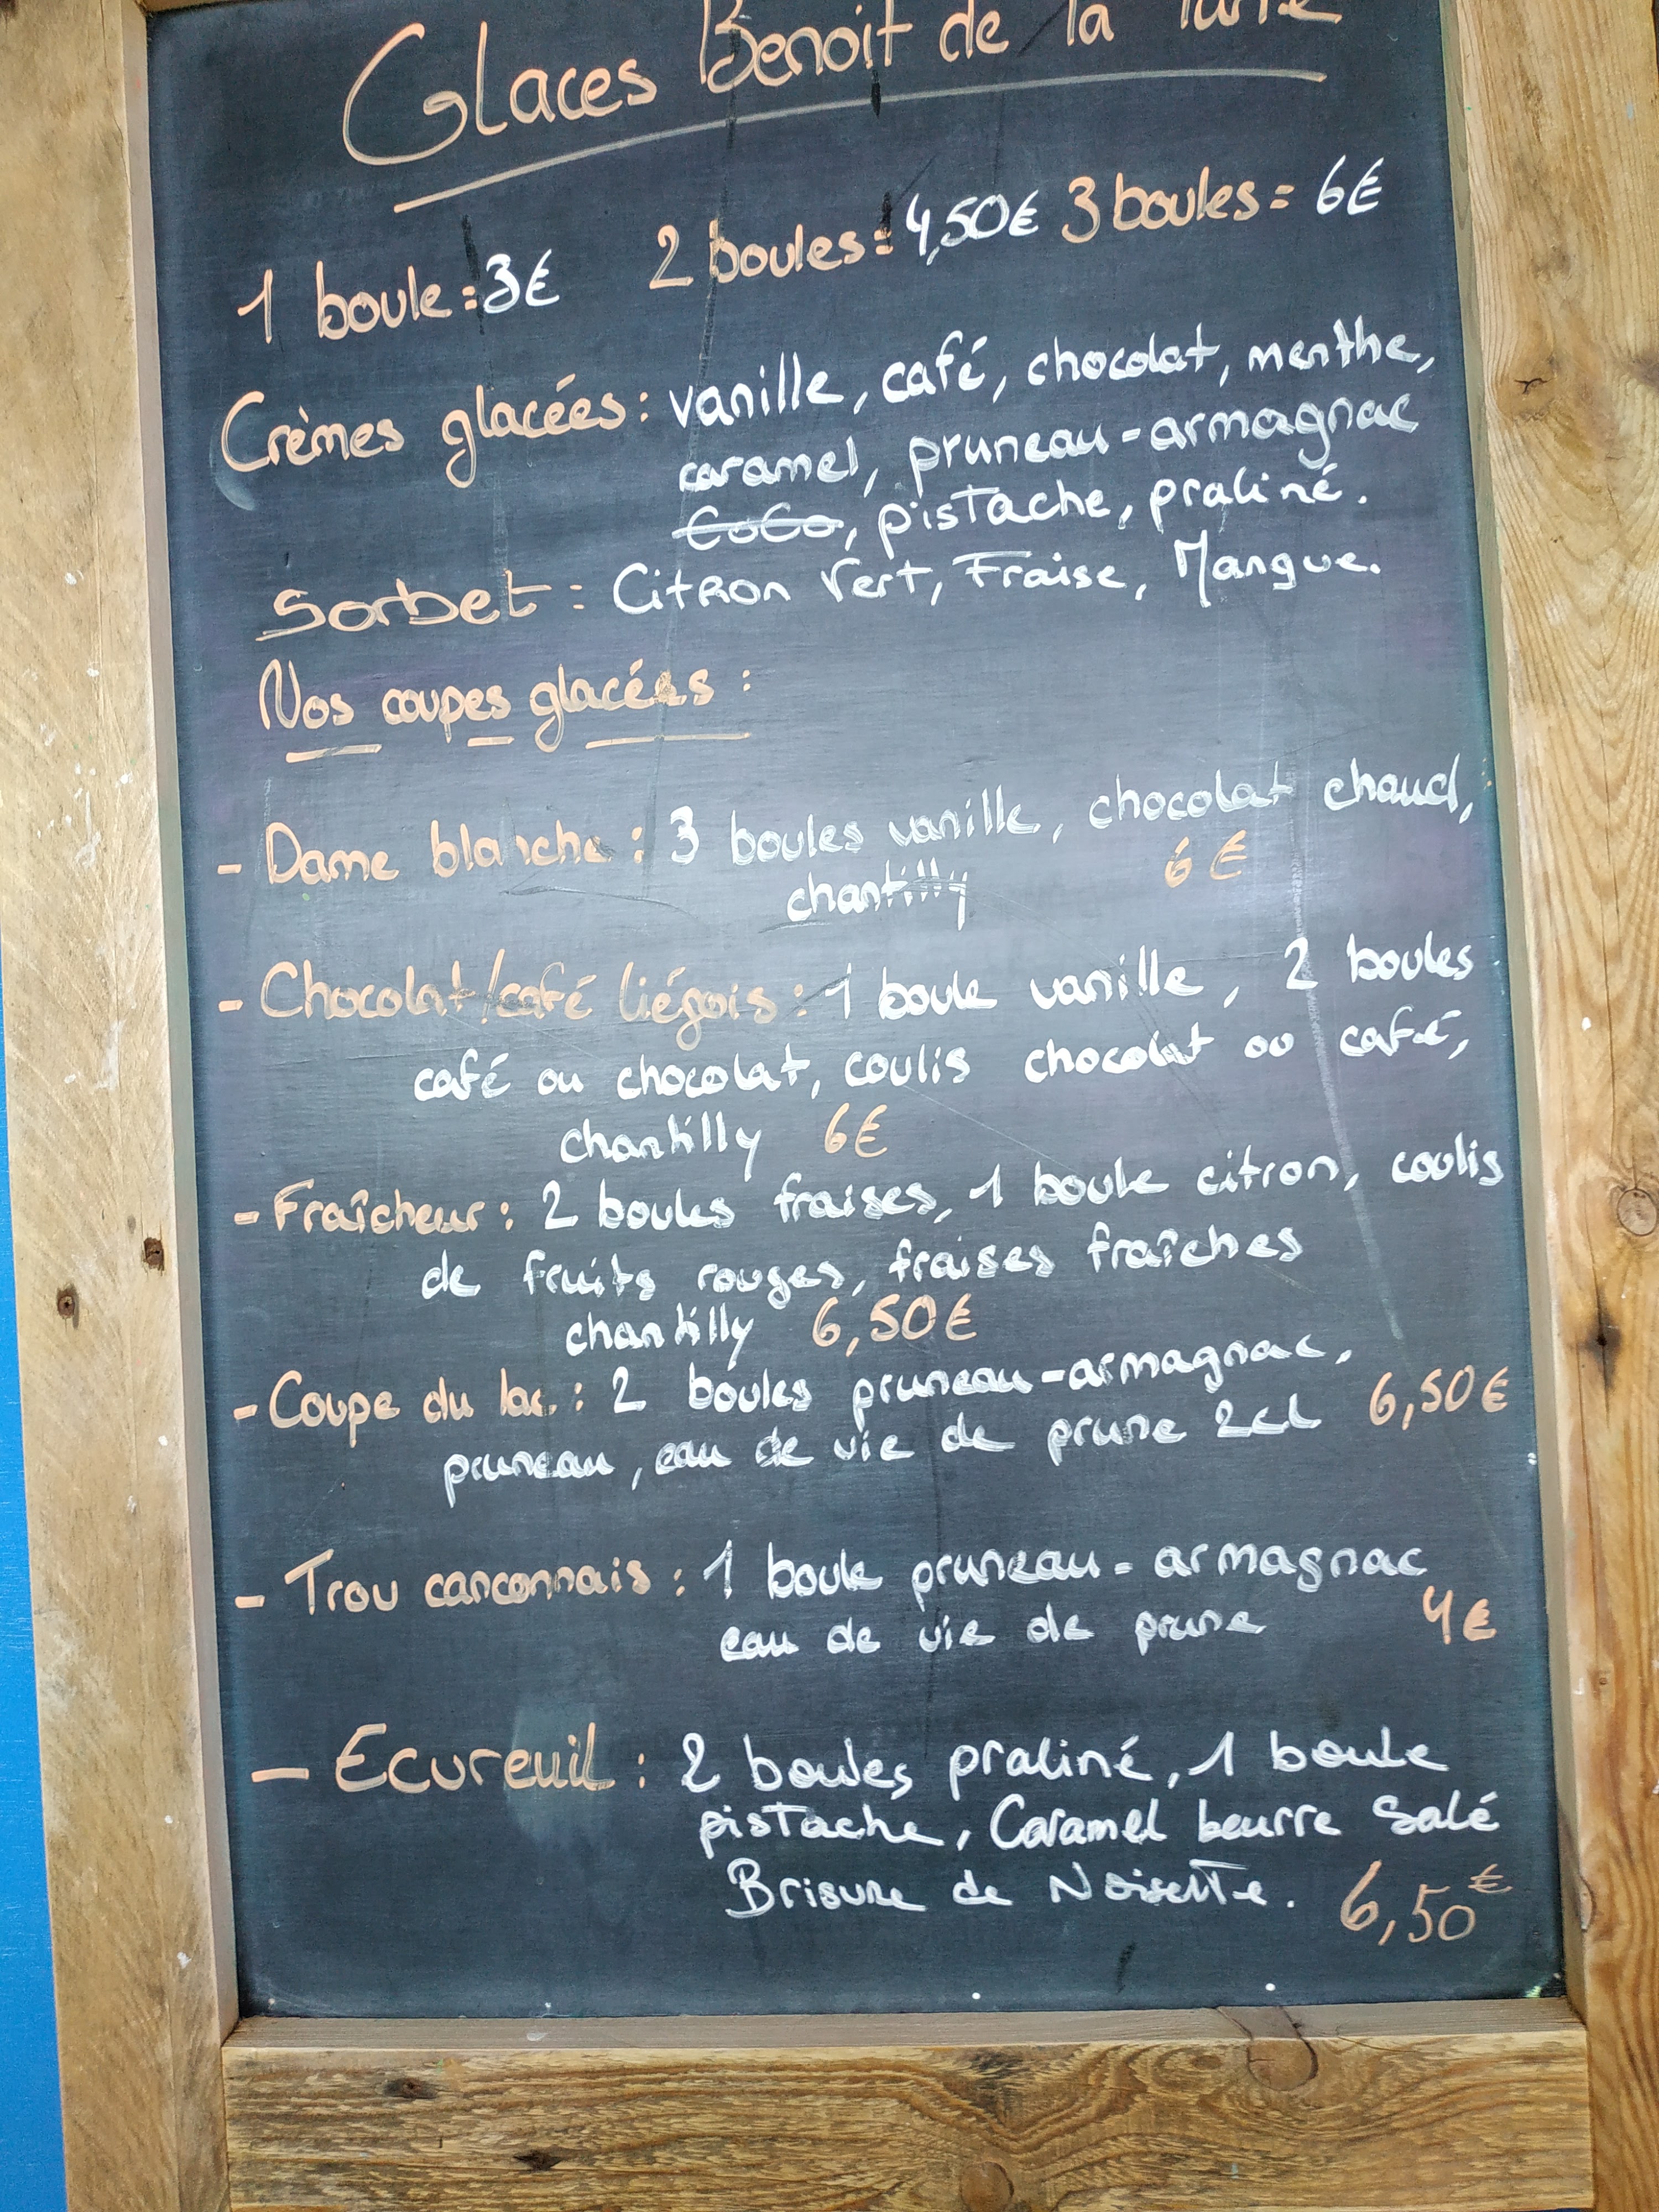 Glaces Benoit de la
1 boule = 3€ 2 boules = 4,50€ 3 boules = 6€
Crèmes glacées : vanille, café, chocolat, menthe,
caramel, pruneau-armagnac
CoCo, pistache, praliné.
Sorbet : Citron Vert, Fraise, Mangue.
Nos coupes glacées :
- Dame blanche : 3 boules vanille, chocolat chaud,
chantilly 6 €
- Chocolat/café liégois : 1 boule vanille, 2 boules
café ou chocolat, coulis chocolat ou café,
chantilly 6€
- Fraîcheur : 2 boules fraises, 1 boule citron, coulis
de fruits rouges, fraises fraîches
chantilly 6,50€
- Coupe du lac : 2 boules pruneau-armagnac,
pruneau, eau de vie de prune 2cl 6,50€
- Trou canconnais : 1 boule pruneau-armagnac
eau de vie de prune 4€
- Ecureuil : 2 boules praliné, 1 boule
pistache, Caramel beurre Salé
Brisure de Noisette. 6,50€